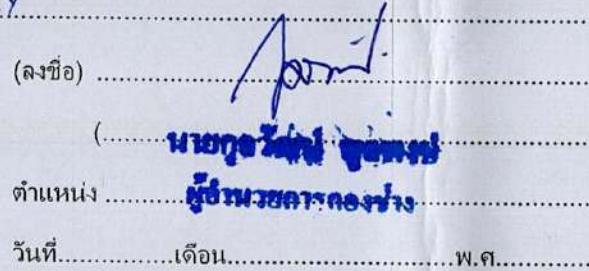 (ลงชื่อ) ..........................................................
(........นายกุลวัฒน์..........................
ตำแหน่ง ..........ผู้อำนวยการกองช่าง..........................
วันที่..............เดือน............................พ.ศ.............